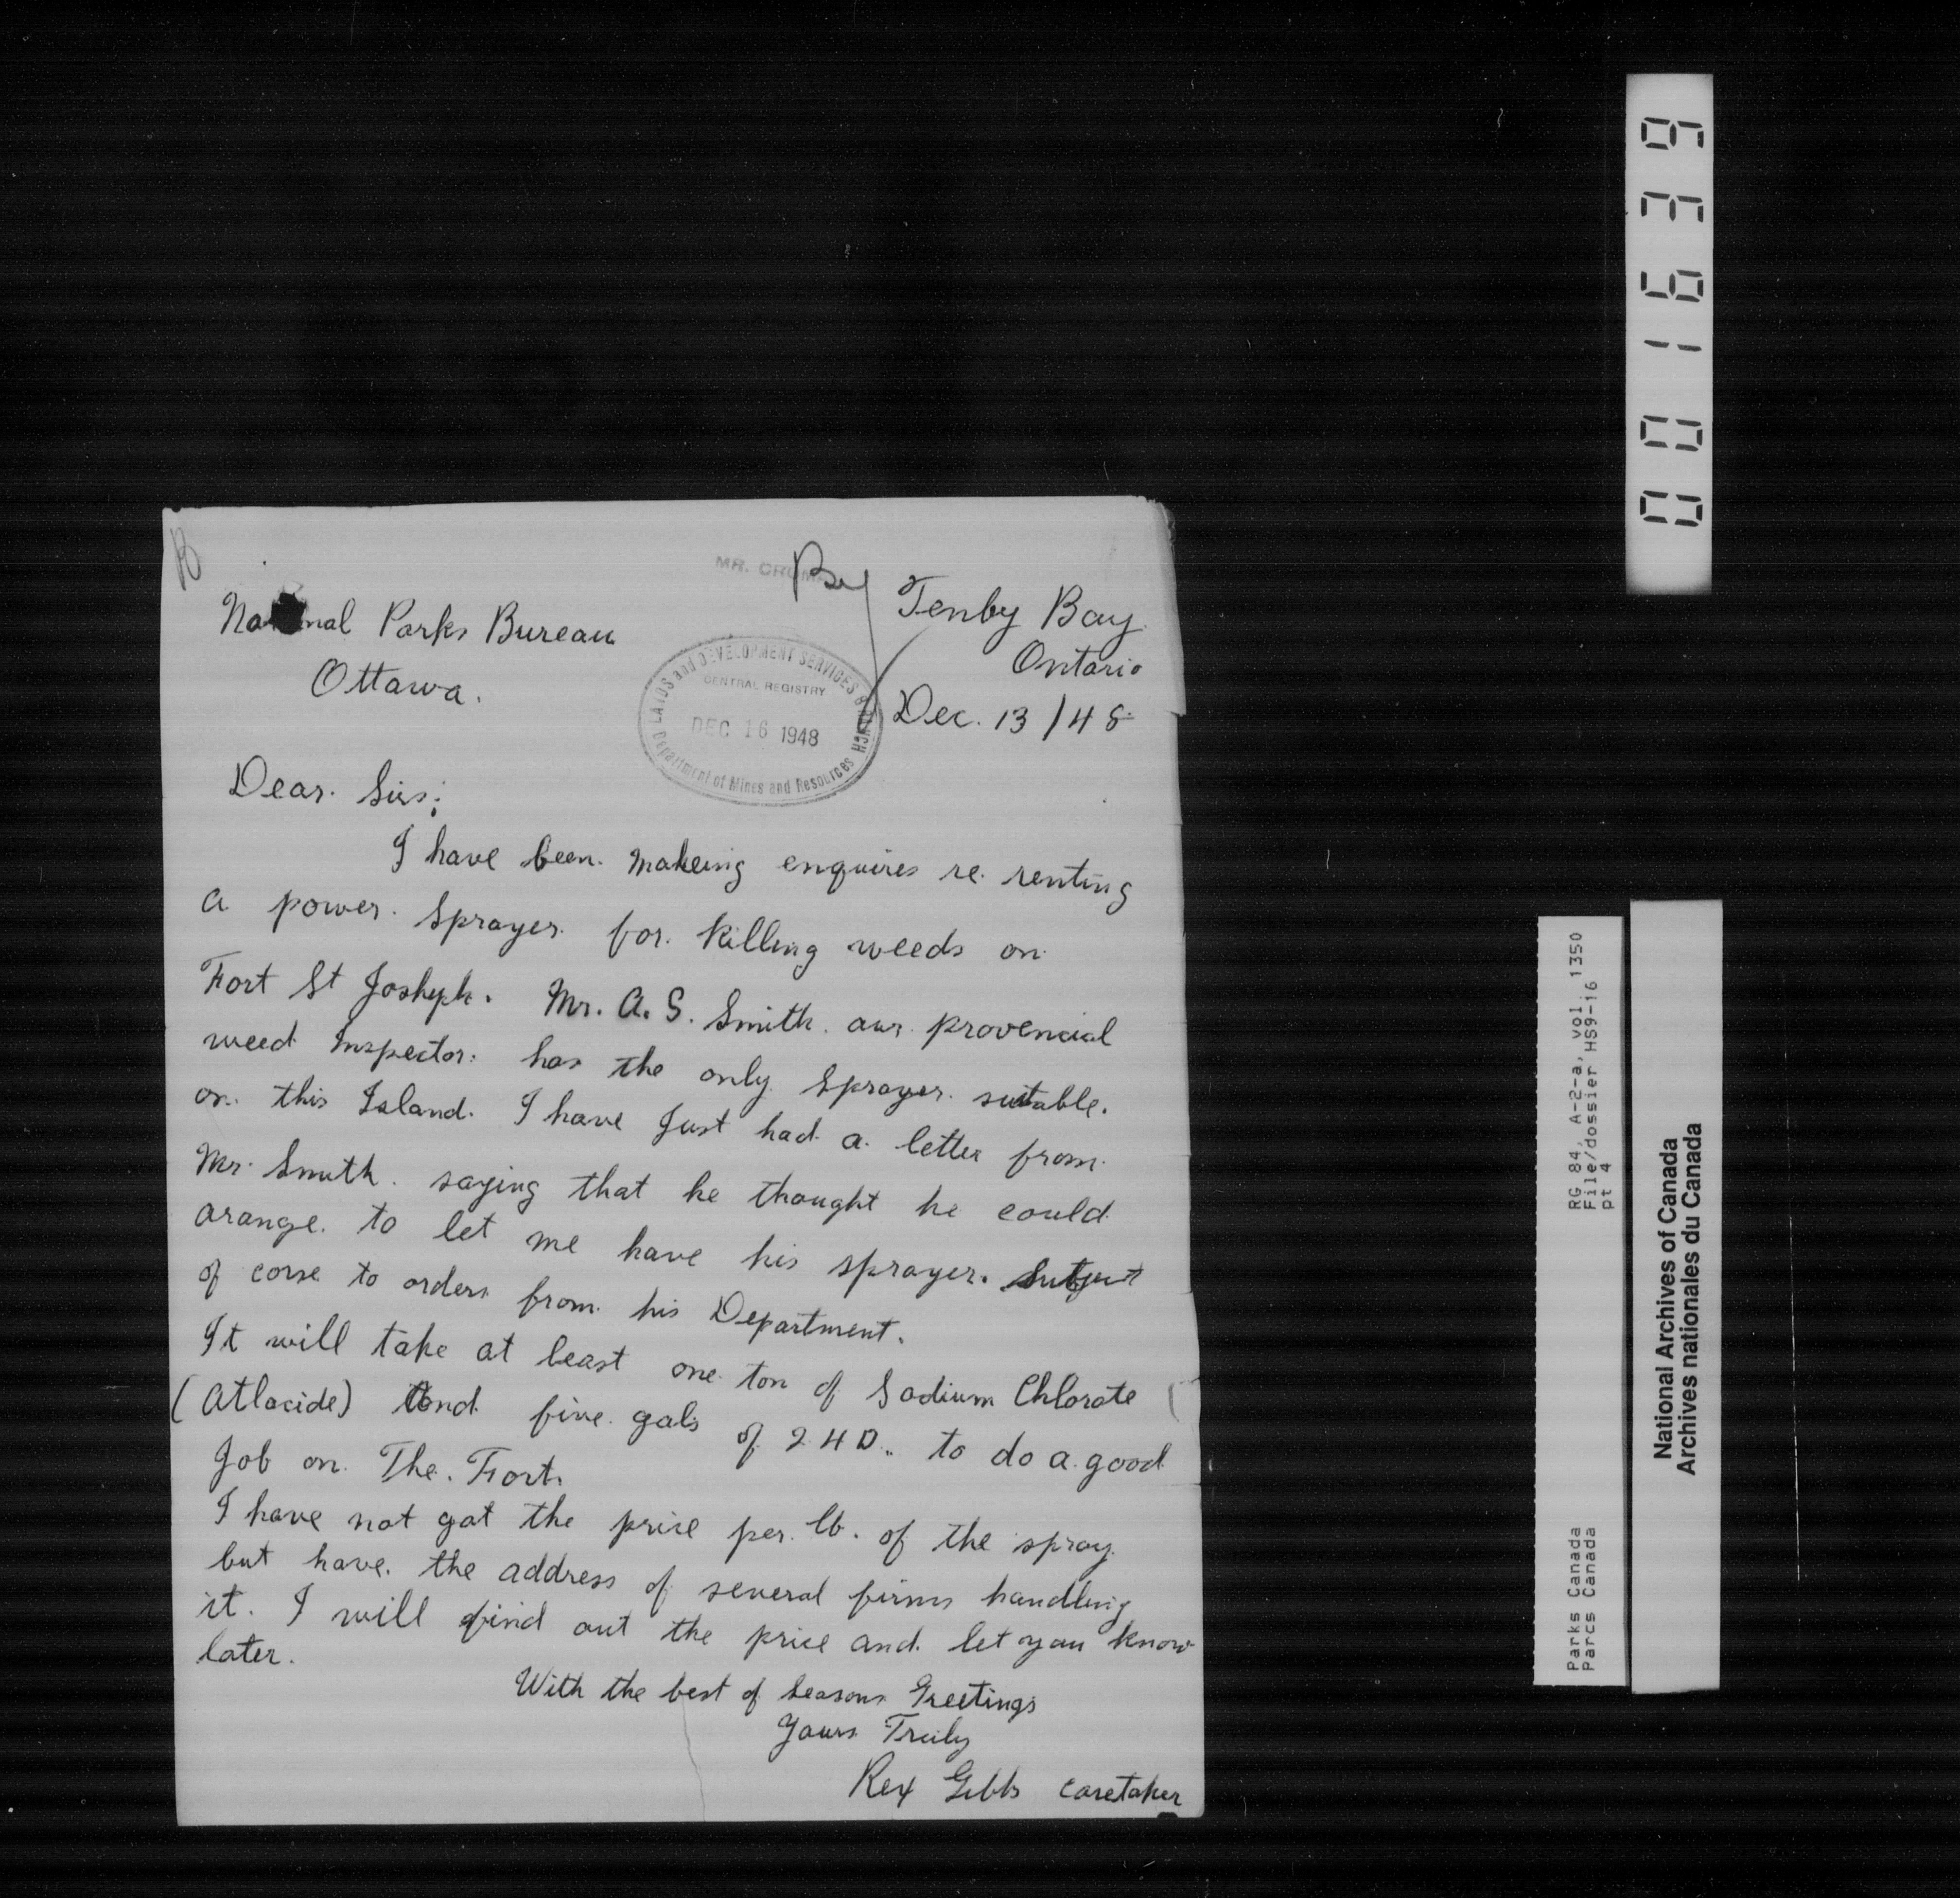 MR. CRUMP
National Parks Bureau
Ottawa.
Tenby Bay
Ontario
Dec. 13/48
LANDS and DEVELOPMENT SERVICES BRANCH
CENTRAL REGISTRY
DEC 16 1948
Department of Mines and Resources
Dear Sirs;
I have been makeing enquires re renting
a power sprayer for killing weeds on
Fort St Joshyph. Mr. A. S. Smith our provencial
weed Inspector has the only sprayer suitable.
on this Island. I have Just had a letter from
Mr. Smith saying that he thought he could
arange to let me have his sprayer. Subject
of corse to orders from his Department.
It will take at least one ton of Sodium Chlorate
(Atlacide) And five gals of 2 4 D. to do a good
Job on The Fort.
I have not got the price per lb. of the spray
but have the address of several firms handling
it. I will find out the price and let you know
later.
With the best of Seasons Greetings
Yours Truly
Rex Gibbs caretaker
001639
RG 84, A-2-a, vol. 1350
File/dossier HS9-16
pt 4
Parks Canada
Parcs Canada
National Archives of Canada
Archives nationales du Canada